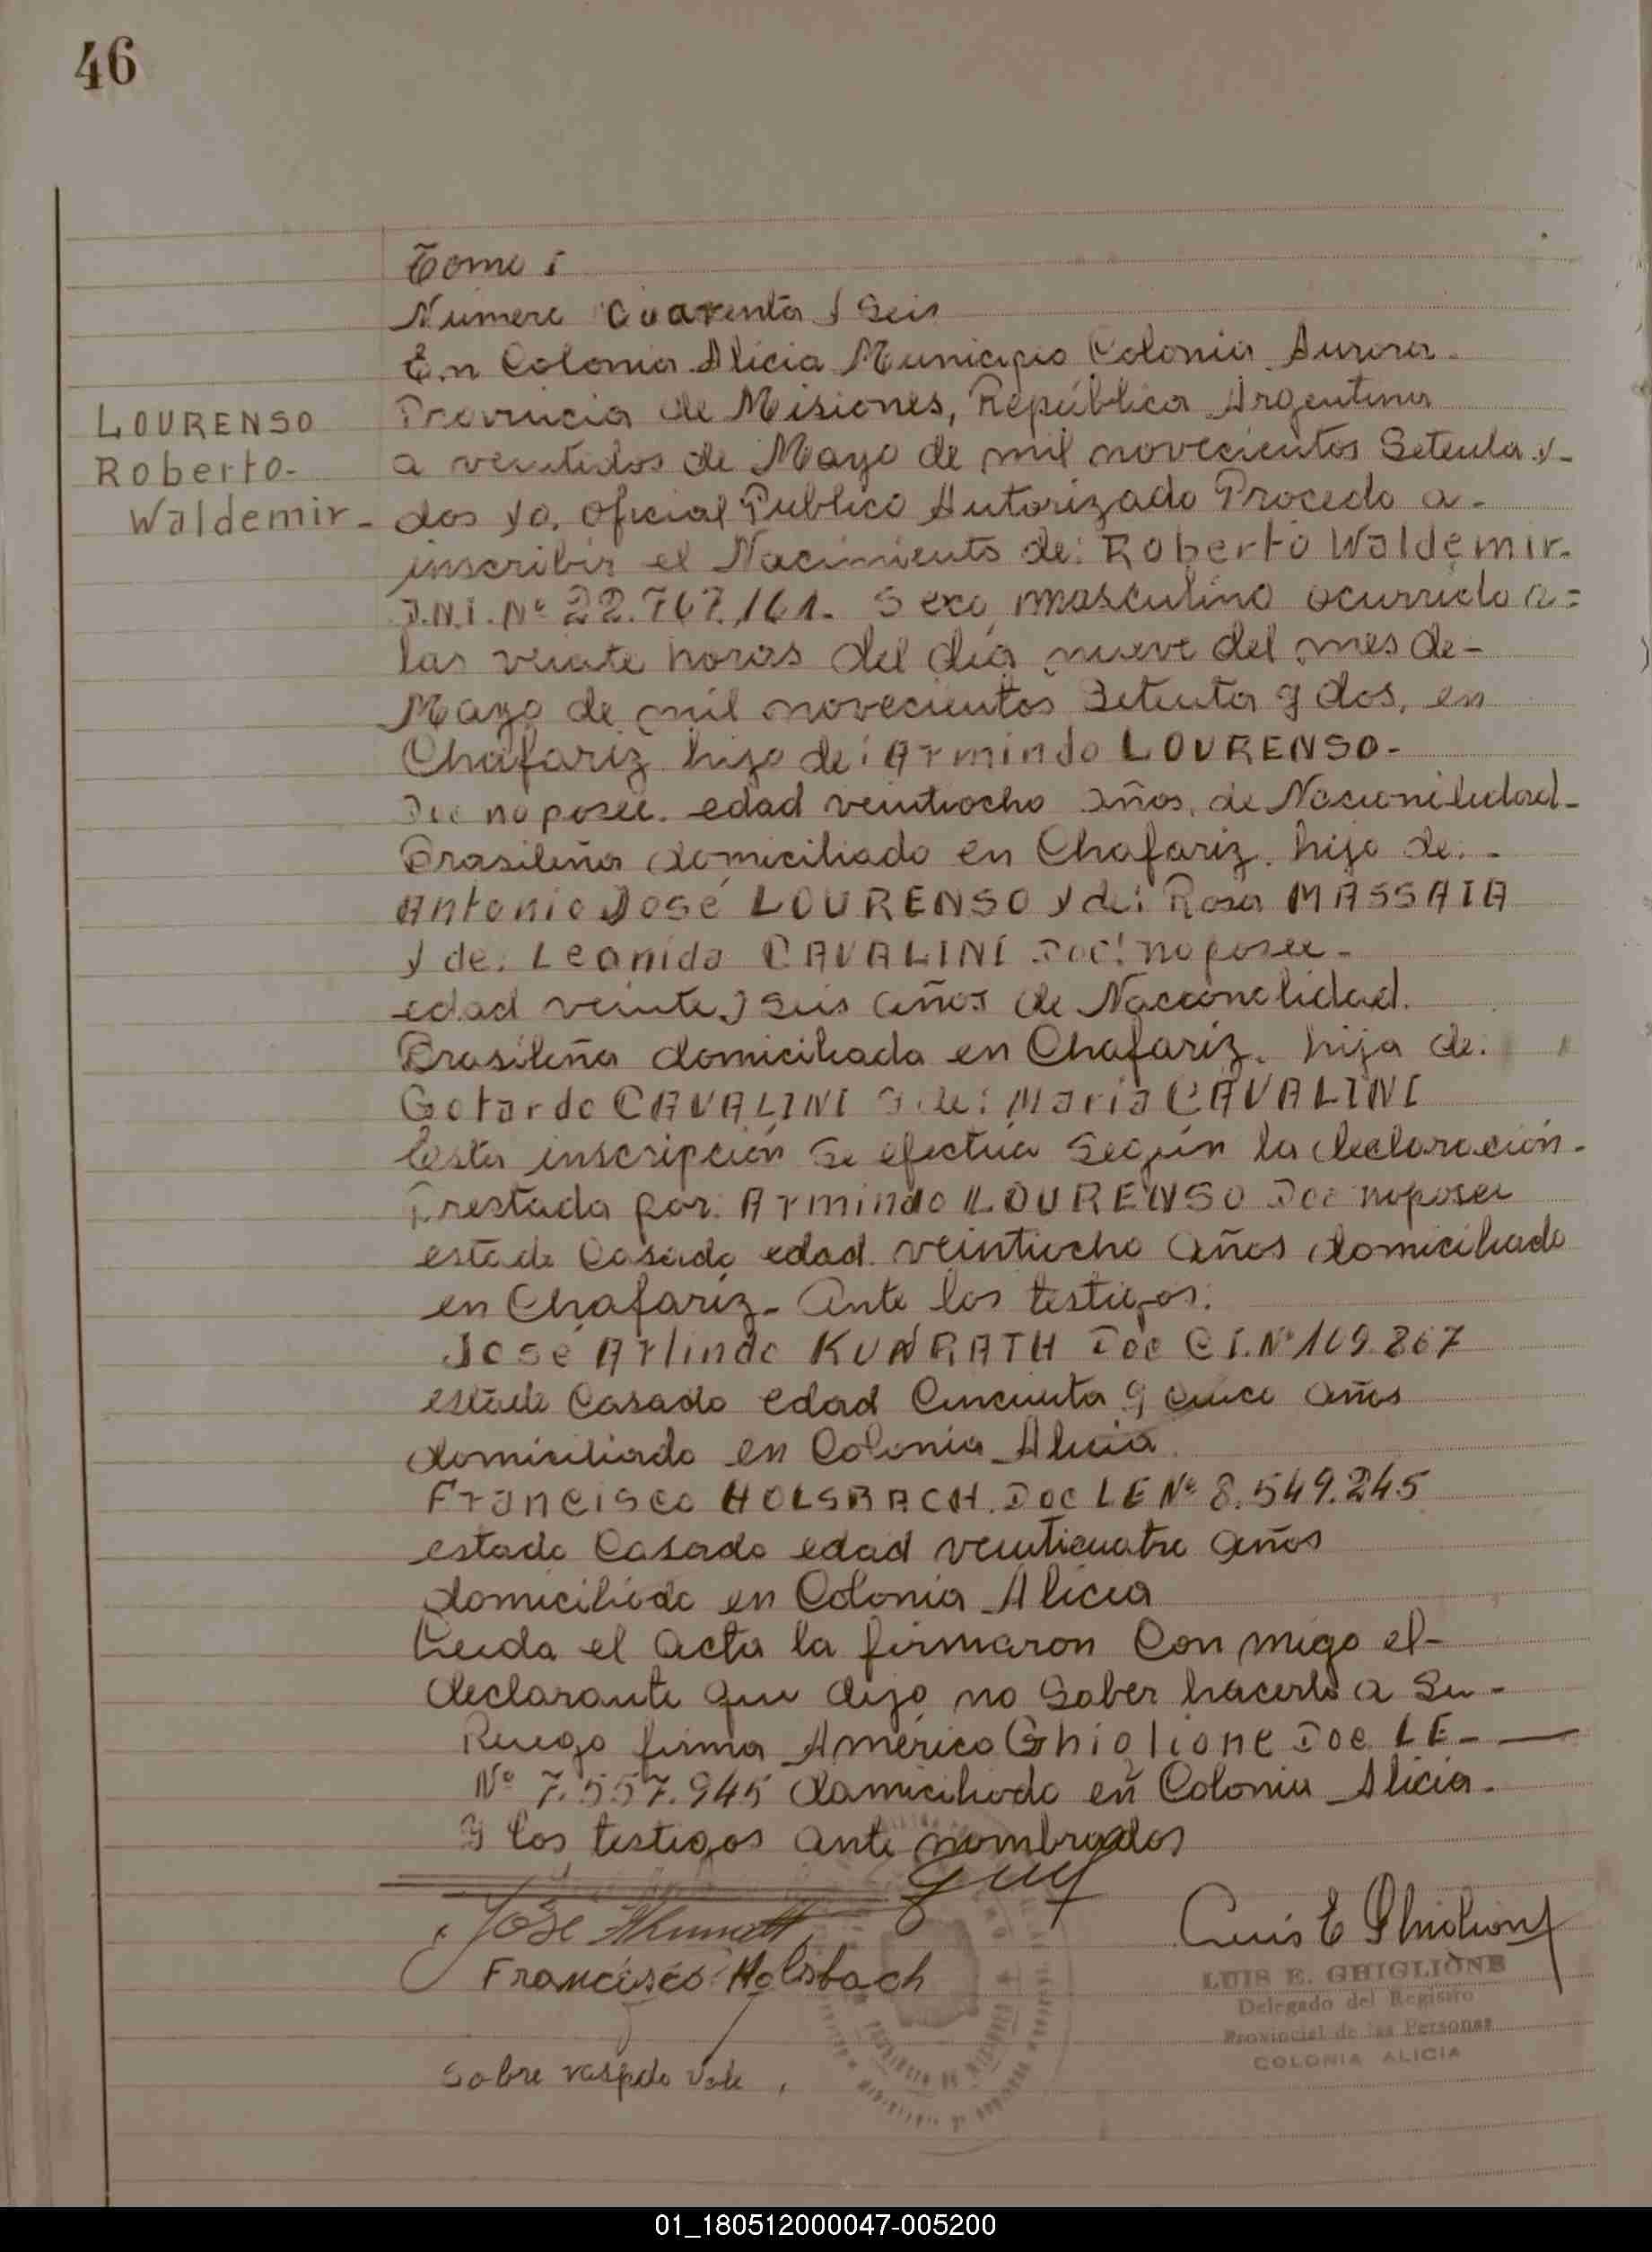 46
Tomo I
Numero Cuarenta y Seis
En Colonia Alicia Municipio Colonia Aurora.
LOURENSO
Roberto-
Waldemir-
Provincia de Misiones, República Argentina
a veintidos de Mayo de mil novecientos Setenta y-
dos yo, Oficial Publico Autorizado Procedo a-
inscribir el Nacimiento de: Roberto Waldemir.
D.N.I. Nº 22.767.161. Sexo masculino ocurrido a=
las veinte horas del día nueve del mes de-
Mayo de mil novecientos Setenta y dos, en
Chafariz hijo de: Armindo LOURENSO-
Doc no posee. edad veintiocho años, de Nacionilidad-
Brasileña domiciliado en Chafariz. hijo de:-
Antonio José LOURENSO y de: Rosa MASSAIA
y de: Leonida CAVALINI Doc: no posee-
edad veinte y seis años de Nacionalidad.
Brasileña domiciliada en Chafariz. hija de:
Gotardo CAVALINI y de: Maria CAVALINI
Esta inscripción se efectúa Según la declaración-
Prestada por: Armindo LOURENSO Doc no posee
estado Casado edad veintiocho años domiciliado
en Chafariz- Ante los testigos:
José Arlindo KUNRATH Doc C I. Nº 109.867
estado Casado edad Cincuenta y cinco años
domiciliado en Colonia Alicia.
Francisco HOLSBACH. Doc LE Nº 8.549.245
estado Casado edad veinticuatro años
domiciliado en Colonia Alicia
Leida el acta la firmaron Con migo el-
declarante que dijo no Saber hacerlo a Su-
Ruego firma Américo Ghiglione Doc LE-
Nº 7.557.945 domiciliado en Colonia Alicia-
y los testigos ante nombrados
José
Francisco Holsbach
Luis E Ghiglione
LUIS E. GHIGLIONE
Delegado del Registro
Provincial de las Personas
COLONIA ALICIA
Sobre raspado vale
01_180512000047-005200